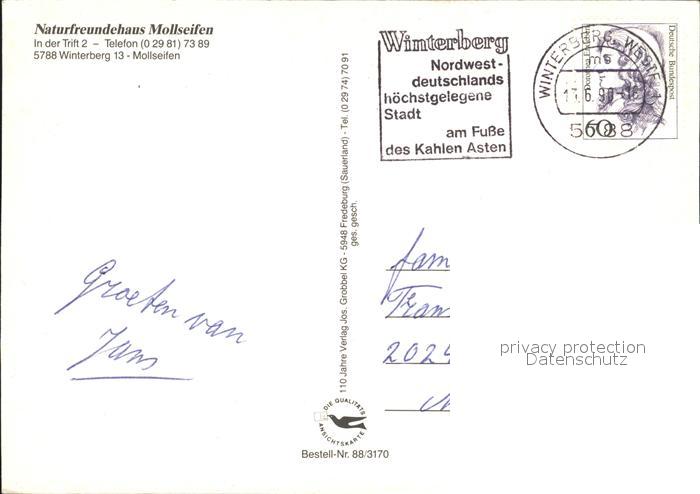 Naturfreundehaus Mollseifen
In der Trift 2 – Telefon (0 29 81) 73 89
5788 Winterberg 13 - Mollseifen
Winterberg
Nordwest-
deutschlands
höchstgelegene
Stadt
am Fuße
des Kahlen Asten
WINTERBERG, WESTF 1
ms
5788
60
Deutsche Bundespost
110 Jahre Verlag Jos. Grobbel KG - 5948 Fredeburg (Sauerland) - Tel. (0 29 74) 70 91
ges. gesch.
Groeten van
Jans
fam
Fran
202
privacy protection
Datenschutz
DIE QUALITÄTS
ANSICHTSKARTE
Bestell-Nr. 88/3170